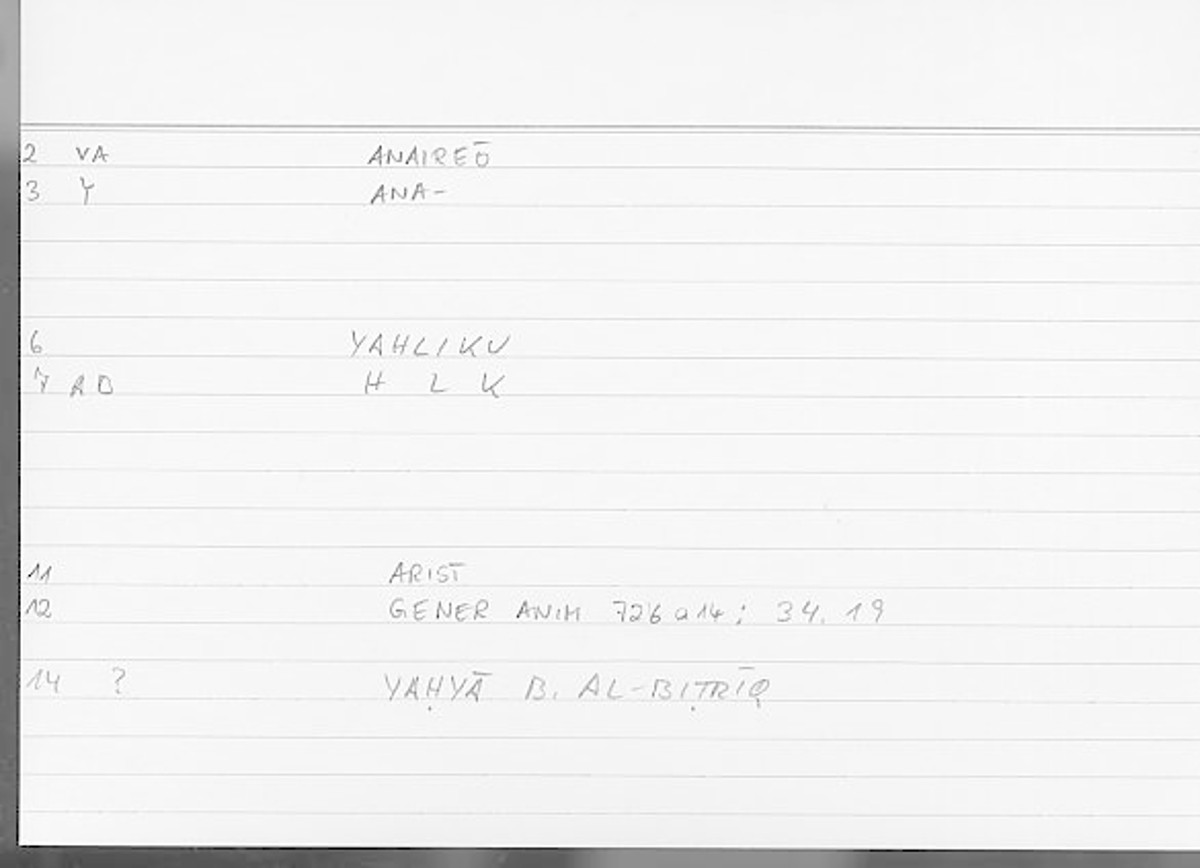 2 VA ANAIREŌ
3 Y ANA-
6 YAHLIKU
7 AD H L K
11 ARIST
12 GENER ANIM 726a14; 34.19
14 ? YAḤYĀ B. AL-BIṬRĪQ